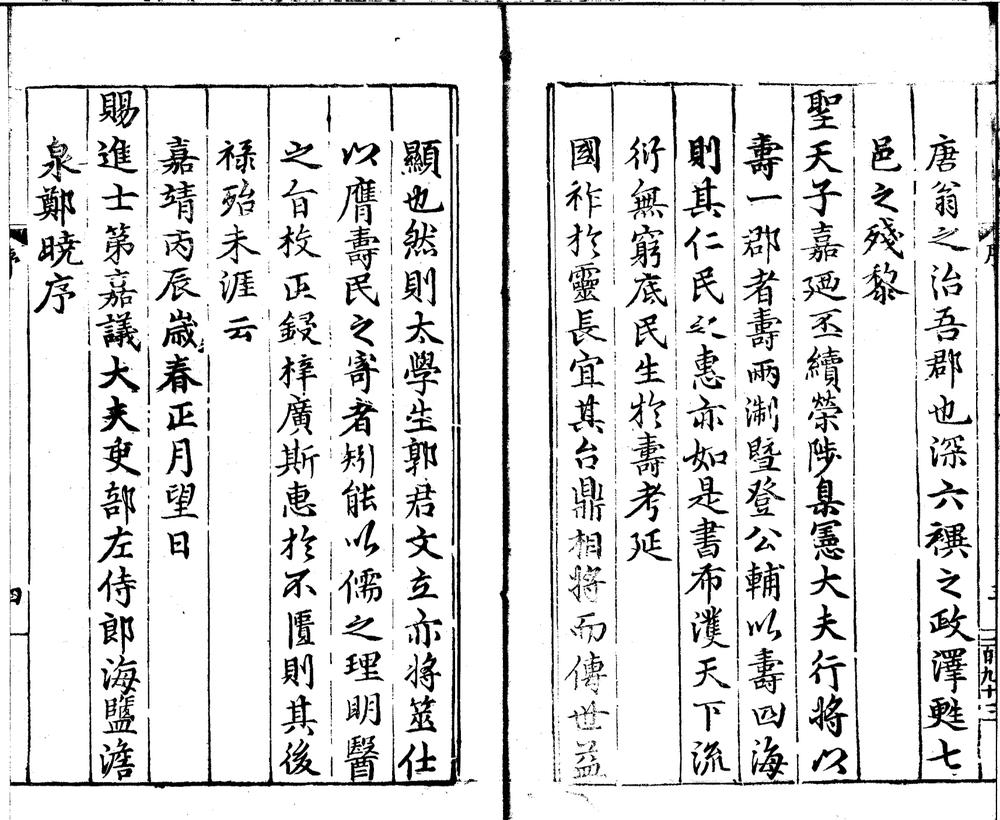 唐翁之治吾郡也深六禩之政澤甦七
邑之殘黎
聖天子嘉廼丕續榮陟臬憲大夫行將以
壽一郡者壽兩淛暨登公輔以壽四海
則其仁民之惠亦如是書布濩天下流
衍無窮底民生於壽考延
國祚於靈長宜其台鼎相將而傳世益
顯也然則太學生郭君文立亦將筮仕
以膺壽民之寄者矧能以儒之理明醫
之旨校正鋟梓廣斯惠於不匱則其後
祿殆未涯云
嘉靖丙辰歲春正月望日
賜進士第嘉議大夫吏部左侍郎海鹽澹
泉鄭曉序
序
四
二百九十三